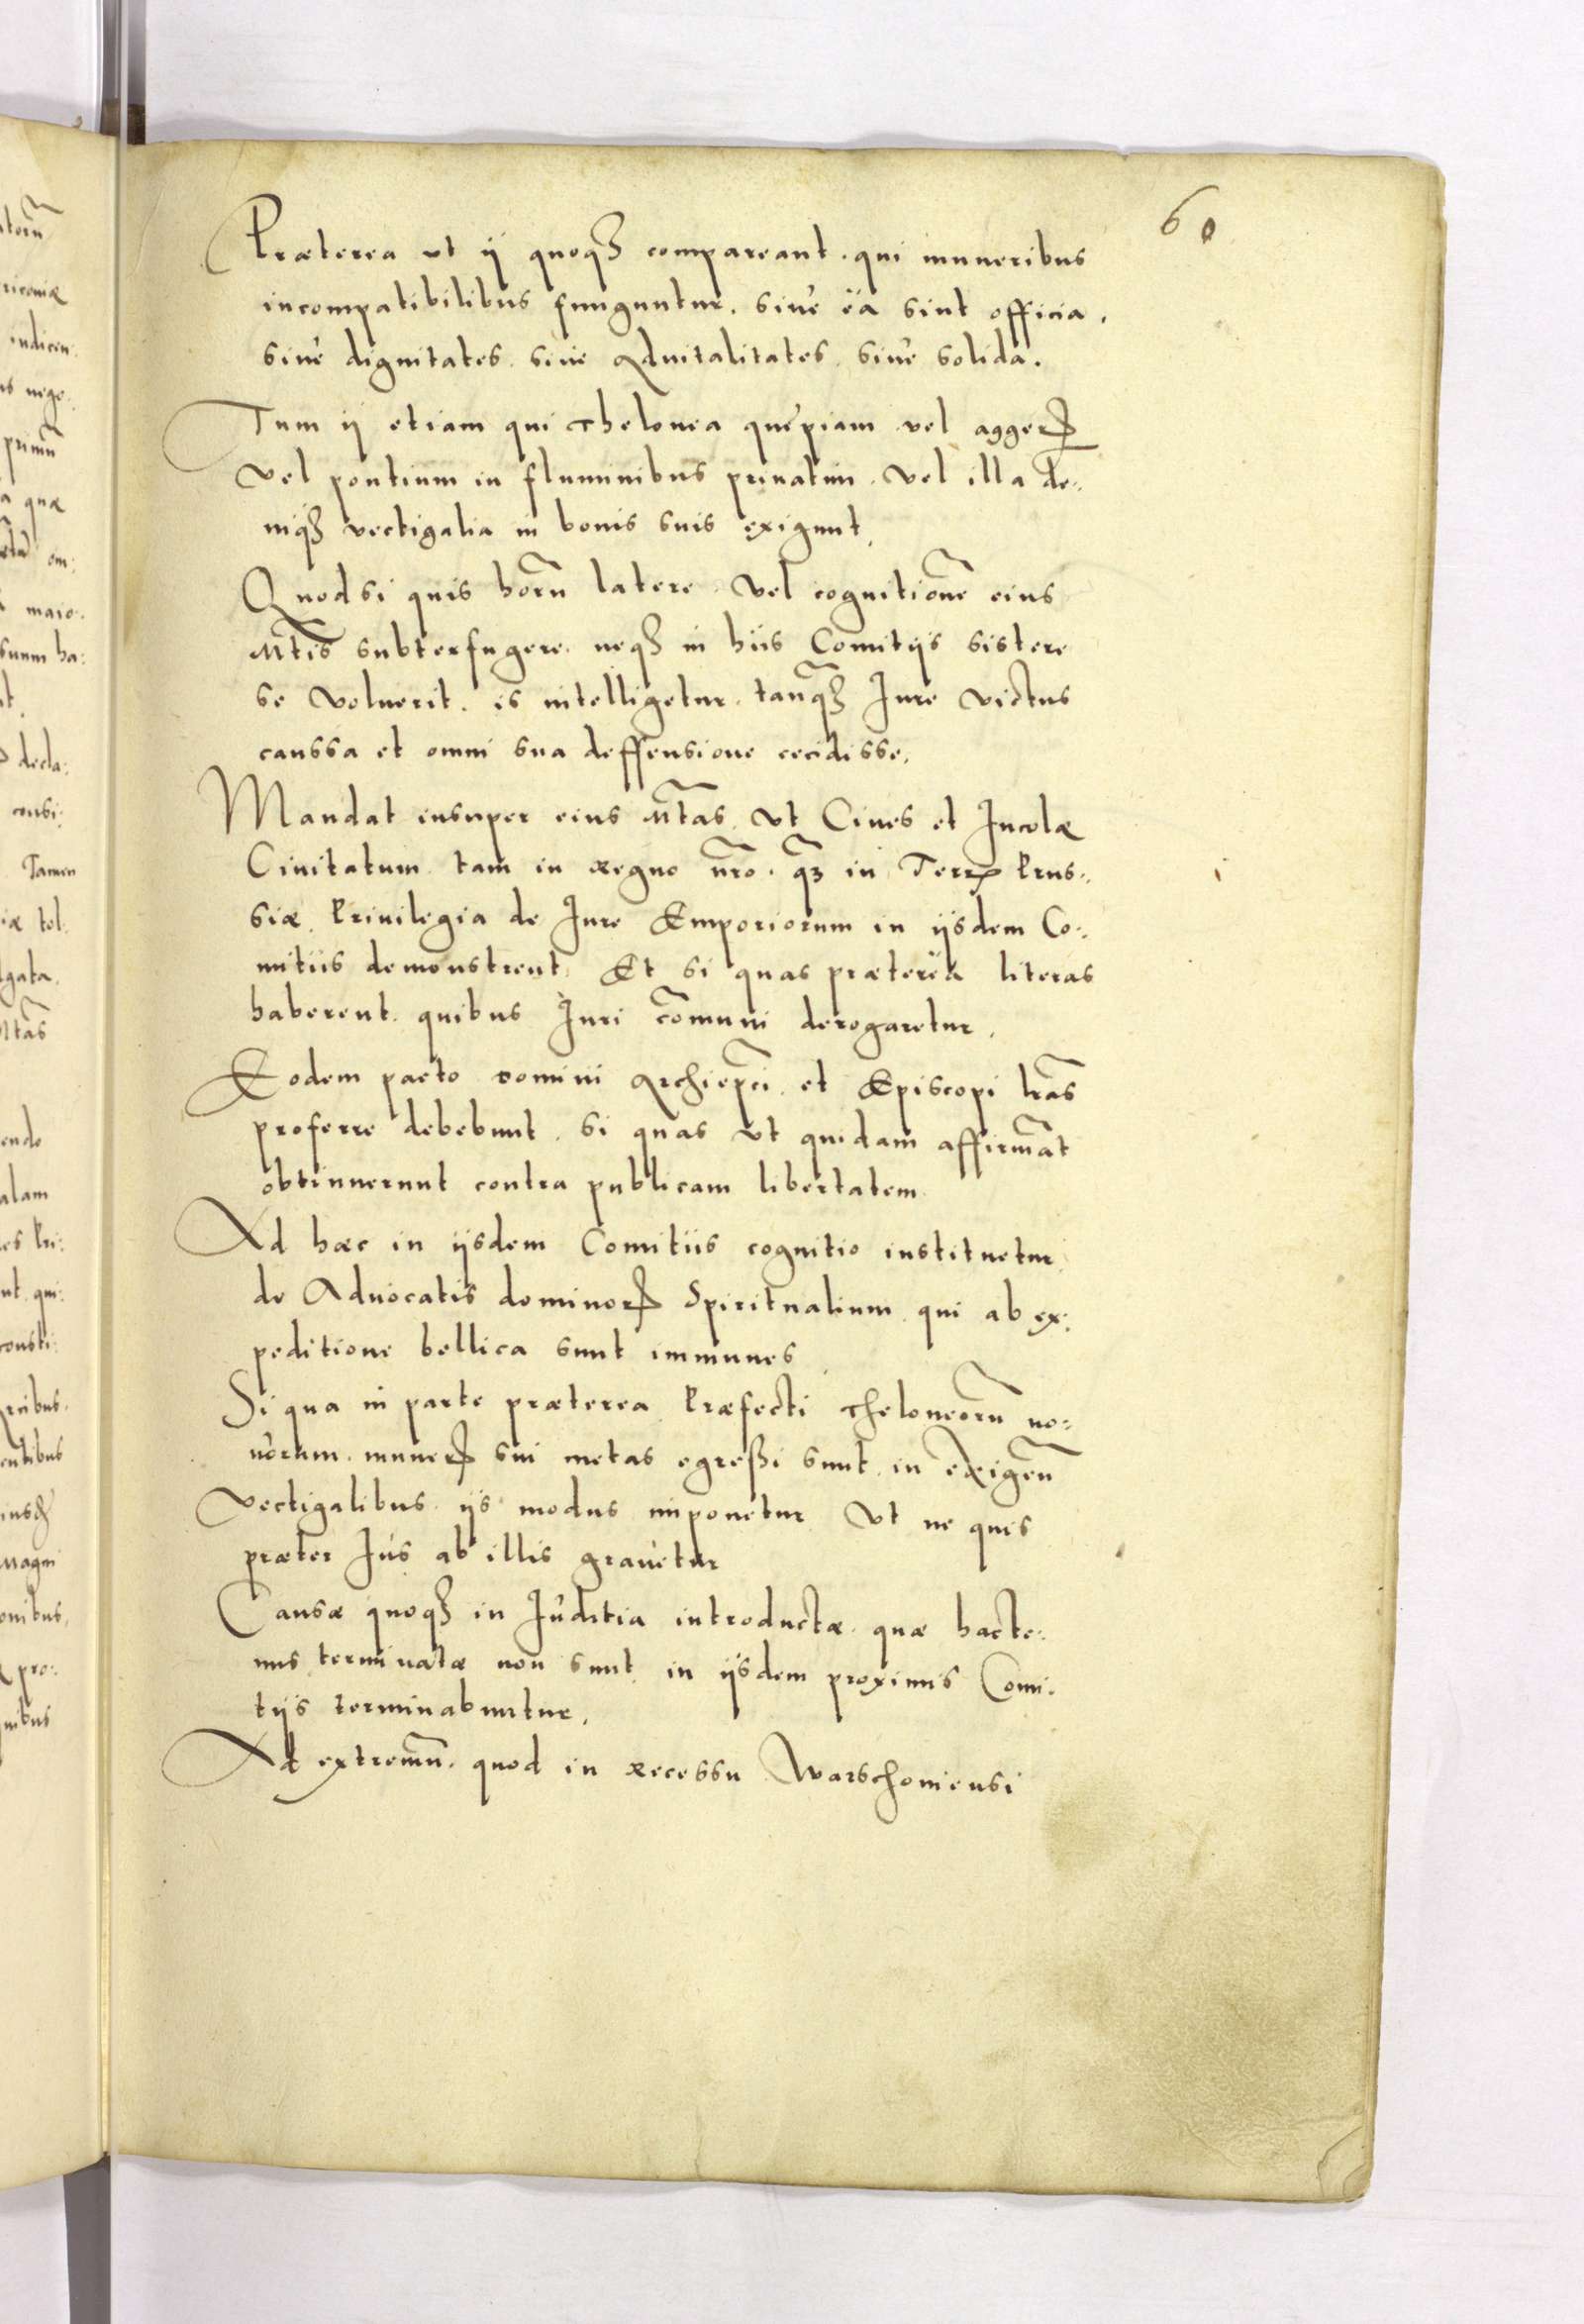 60
Præterea ut ij quoqꝫ compareant. qui muneribus
incompatibilibus funguntur. siue ea sint officia,
siue dignitates. siue Aduitalitates. siue solida.
Tum ij etiam qui Thelonea quępiam vel aggerꝝ
vel pontium in fluminibus priuatim. vel illa de-
niqꝫ vectigalia in bonis suis exigunt,
Quod si quis horũ latere. vel cognitionẽ eius
Mt̃is subterfugere. neqꝫ in hiis Comitijs sistere
se voluerit. is intelligetur. tanq̃ꝫ Jure victus
caussa et omni sua deffensione cecidisse,
Mandat insuper eius Mt̃as. ut Ciues et Incolæ
Ciuitatum. tam in regno nr̃o. q̃ꝫ in Terrꝭ Prus-
siæ. Priuilegia de Jure Emporiorum in ijsdem Co-
mitiis demonstrent. Et si quas præterea literas
haberent. quibus Juri cõmuni derogaretur,
Eodem pacto domini Archiepc̃i. et Episcopi lr̃as
proferre debebunt. si quas ut quidam affirmãt
obtinuerunt contra publicam libertatem
Ad hæc in ijsdem Comitiis cognitio instituetur
de Aduocatis dominorꝝ Spiritualium. qui ab ex:
peditione bellica sunt immunes
Si qua in parte præterea Præfecti Theloneorũ no:
uorum. munerꝝ sui metas egreßi sunt. in exigeñ
vectigalibus. ijs modus imponetur ut ne quis
præter Jus ab illis grauetur
Causæ quoqꝫ in Juditia introductæ. quæ hacte:
nus terminatæ non sunt. in ijsdem proximis Comi-
tijs terminabuntur,
Ad extremũ. quod in recessu Warschouiensi